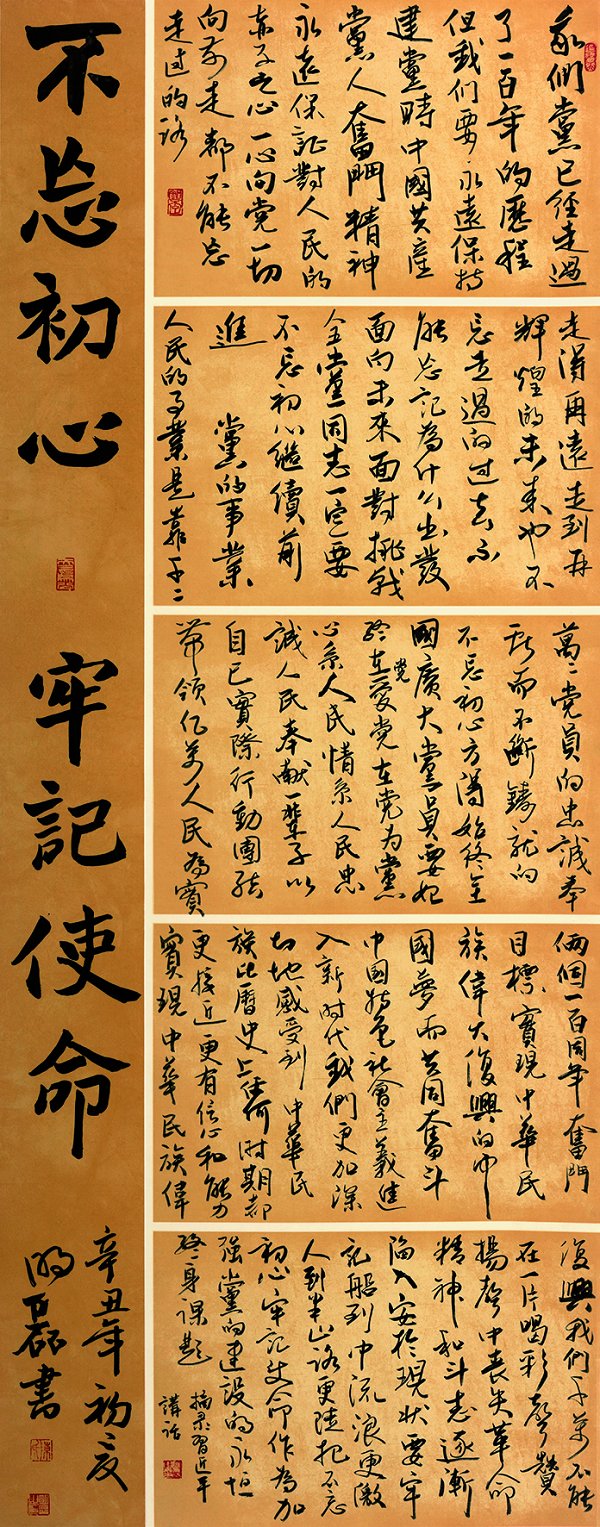 我们黨已經走過
了一百年的歷程
但我们要永遠保持
建黨時中國共産
黨人奮鬥精神
永遠保証對人民的
赤子之心一心向党一切
向前走都不能忘
走过的路
走得再遠走到再
輝煌的未来也不
忘走過的过去不
能忘記為什么出發
面向未來面對挑战
全黨同志一定要
不忘初心繼續前
進 黨的事業
人民的事業是靠千千
萬萬党員的忠誠奉
献而不斷鑄就的
不忘初心方得始終全
國廣大黨員要始
終在党愛党在党为黨
心系人民情系人民忠
誠人民奉献一輩子以
自己實際行動團結
帶領亿万人民為實
俩個一百周年奮鬥
目標實現中華民
族偉大復興的中
國夢而共同奮斗
中国特色社會主義進
入新时代我們更加深
切地感受到中華民
族比曆史上任何时期都
更接近更有信心和能力
實現中華民族偉
復興我們千萬不能
在一片喝彩聲贊
揚聲中丧失革命
精神和斗志逐漸
陷入安於現状要牢
記船到中流浪更激
人到半山路更陡把不忘
初心牢記使命作為加
強黨的建設的永恒
終身课題 摘录習近平
講話
不忘初心 牢記使命
辛丑年初夏
明磊書